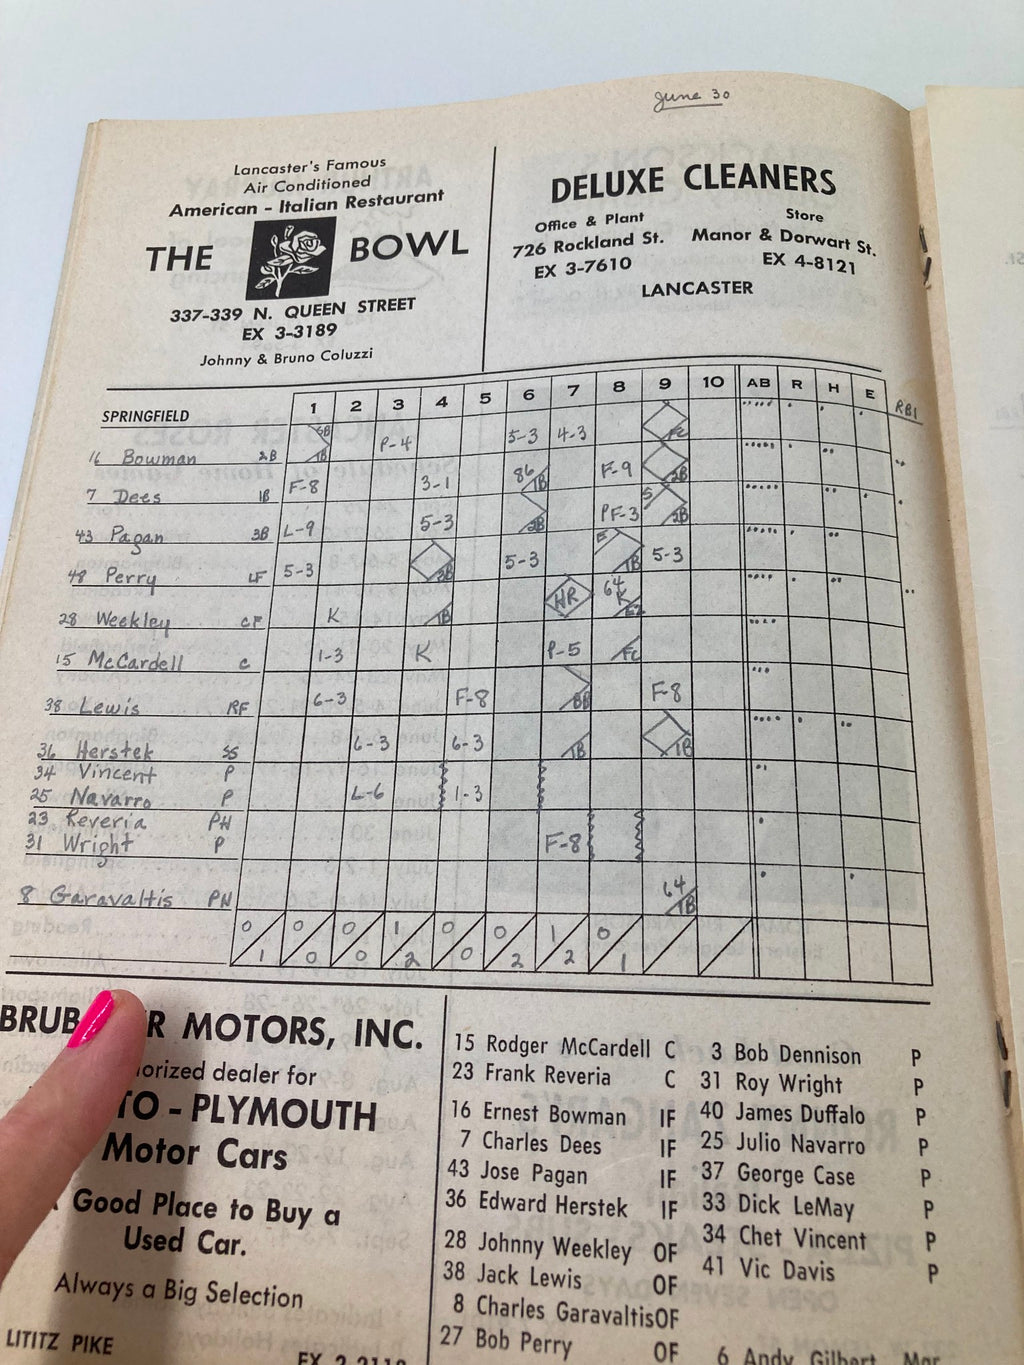 June 30
Lancaster's Famous
Air Conditioned
American - Italian Restaurant
THE BOWL
337-339 N. QUEEN STREET
EX 3-3189
Johnny & Bruno Coluzzi
DELUXE CLEANERS
Office & Plant
726 Rockland St.
EX 3-7610
Store
Manor & Dorwart St.
EX 4-8121
LANCASTER
SPRINGFIELD 1 2 3 4 5 6 7 8 9 10 AB R H E RBI
16 Bowman 2B SB 1B P-4 5-3 4-3 FC
7 Dees 1B F-8 3-1 86 1B F-9 2B
43 Pagan 3B L-9 5-3 2B PF-3 5 2B
48 Perry LF 5-3 2B 5-3 E 1B 5-3
28 Weekley CF K 1B HR 64 K E2
15 McCardell C 1-3 K P-5 FC
38 Lewis RF 6-3 F-8 BB F-8
36 Herstek SS 6-3 6-3 1B 1B
34 Vincent P
25 Navarro P L-6 1-3
23 Reveria PH
31 Wright P F-8
8 Garavaltis PH 64 1B
0 0 0 1 0 0 1 0
1 0 0 2 0 2 2 1
MOTORS, INC.
dealer for
PLYMOUTH
Motor Cars
Good Place to Buy a
Used Car.
Always a Big Selection
LITITZ PIKE
15 Rodger McCardell C
23 Frank Reveria C
16 Ernest Bowman IF
7 Charles Dees IF
43 Jose Pagan IF
36 Edward Herstek IF
28 Johnny Weekley OF
38 Jack Lewis OF
8 Charles Garavaltis OF
27 Bob Perry OF
3 Bob Dennison P
31 Roy Wright P
40 James Duffalo P
25 Julio Navarro P
37 George Case P
33 Dick LeMay P
34 Chet Vincent P
41 Vic Davis P
6 Andy Gilbert Mgr